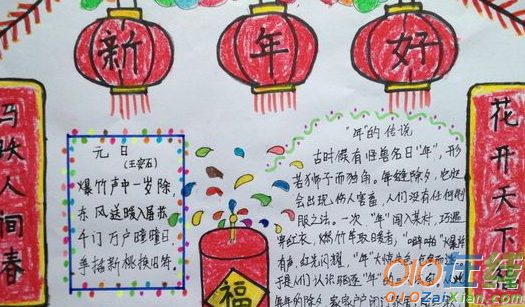 新年好
马跃人间春
元日
(王安石)
爆竹声中一岁除,
春风送暖入屠苏
千门万户曈曈日
手 新桃换旧符.
福
"年"的传说
古时候有怪兽名曰"年",形
若狮子而独角。年逢除夕,它
会出现,伤人害畜,人们没有任何制
服之法。一次"年"闯入某村,巧遇
穿红衣,燃竹竿取暖者,"噼啪"爆炸
有声,红光闪耀,"年"大惊失色
于是人们认识驱逐"年"的
年年的除夕 家家户户
花开天下
OIO在线
OIOZaiXian.com